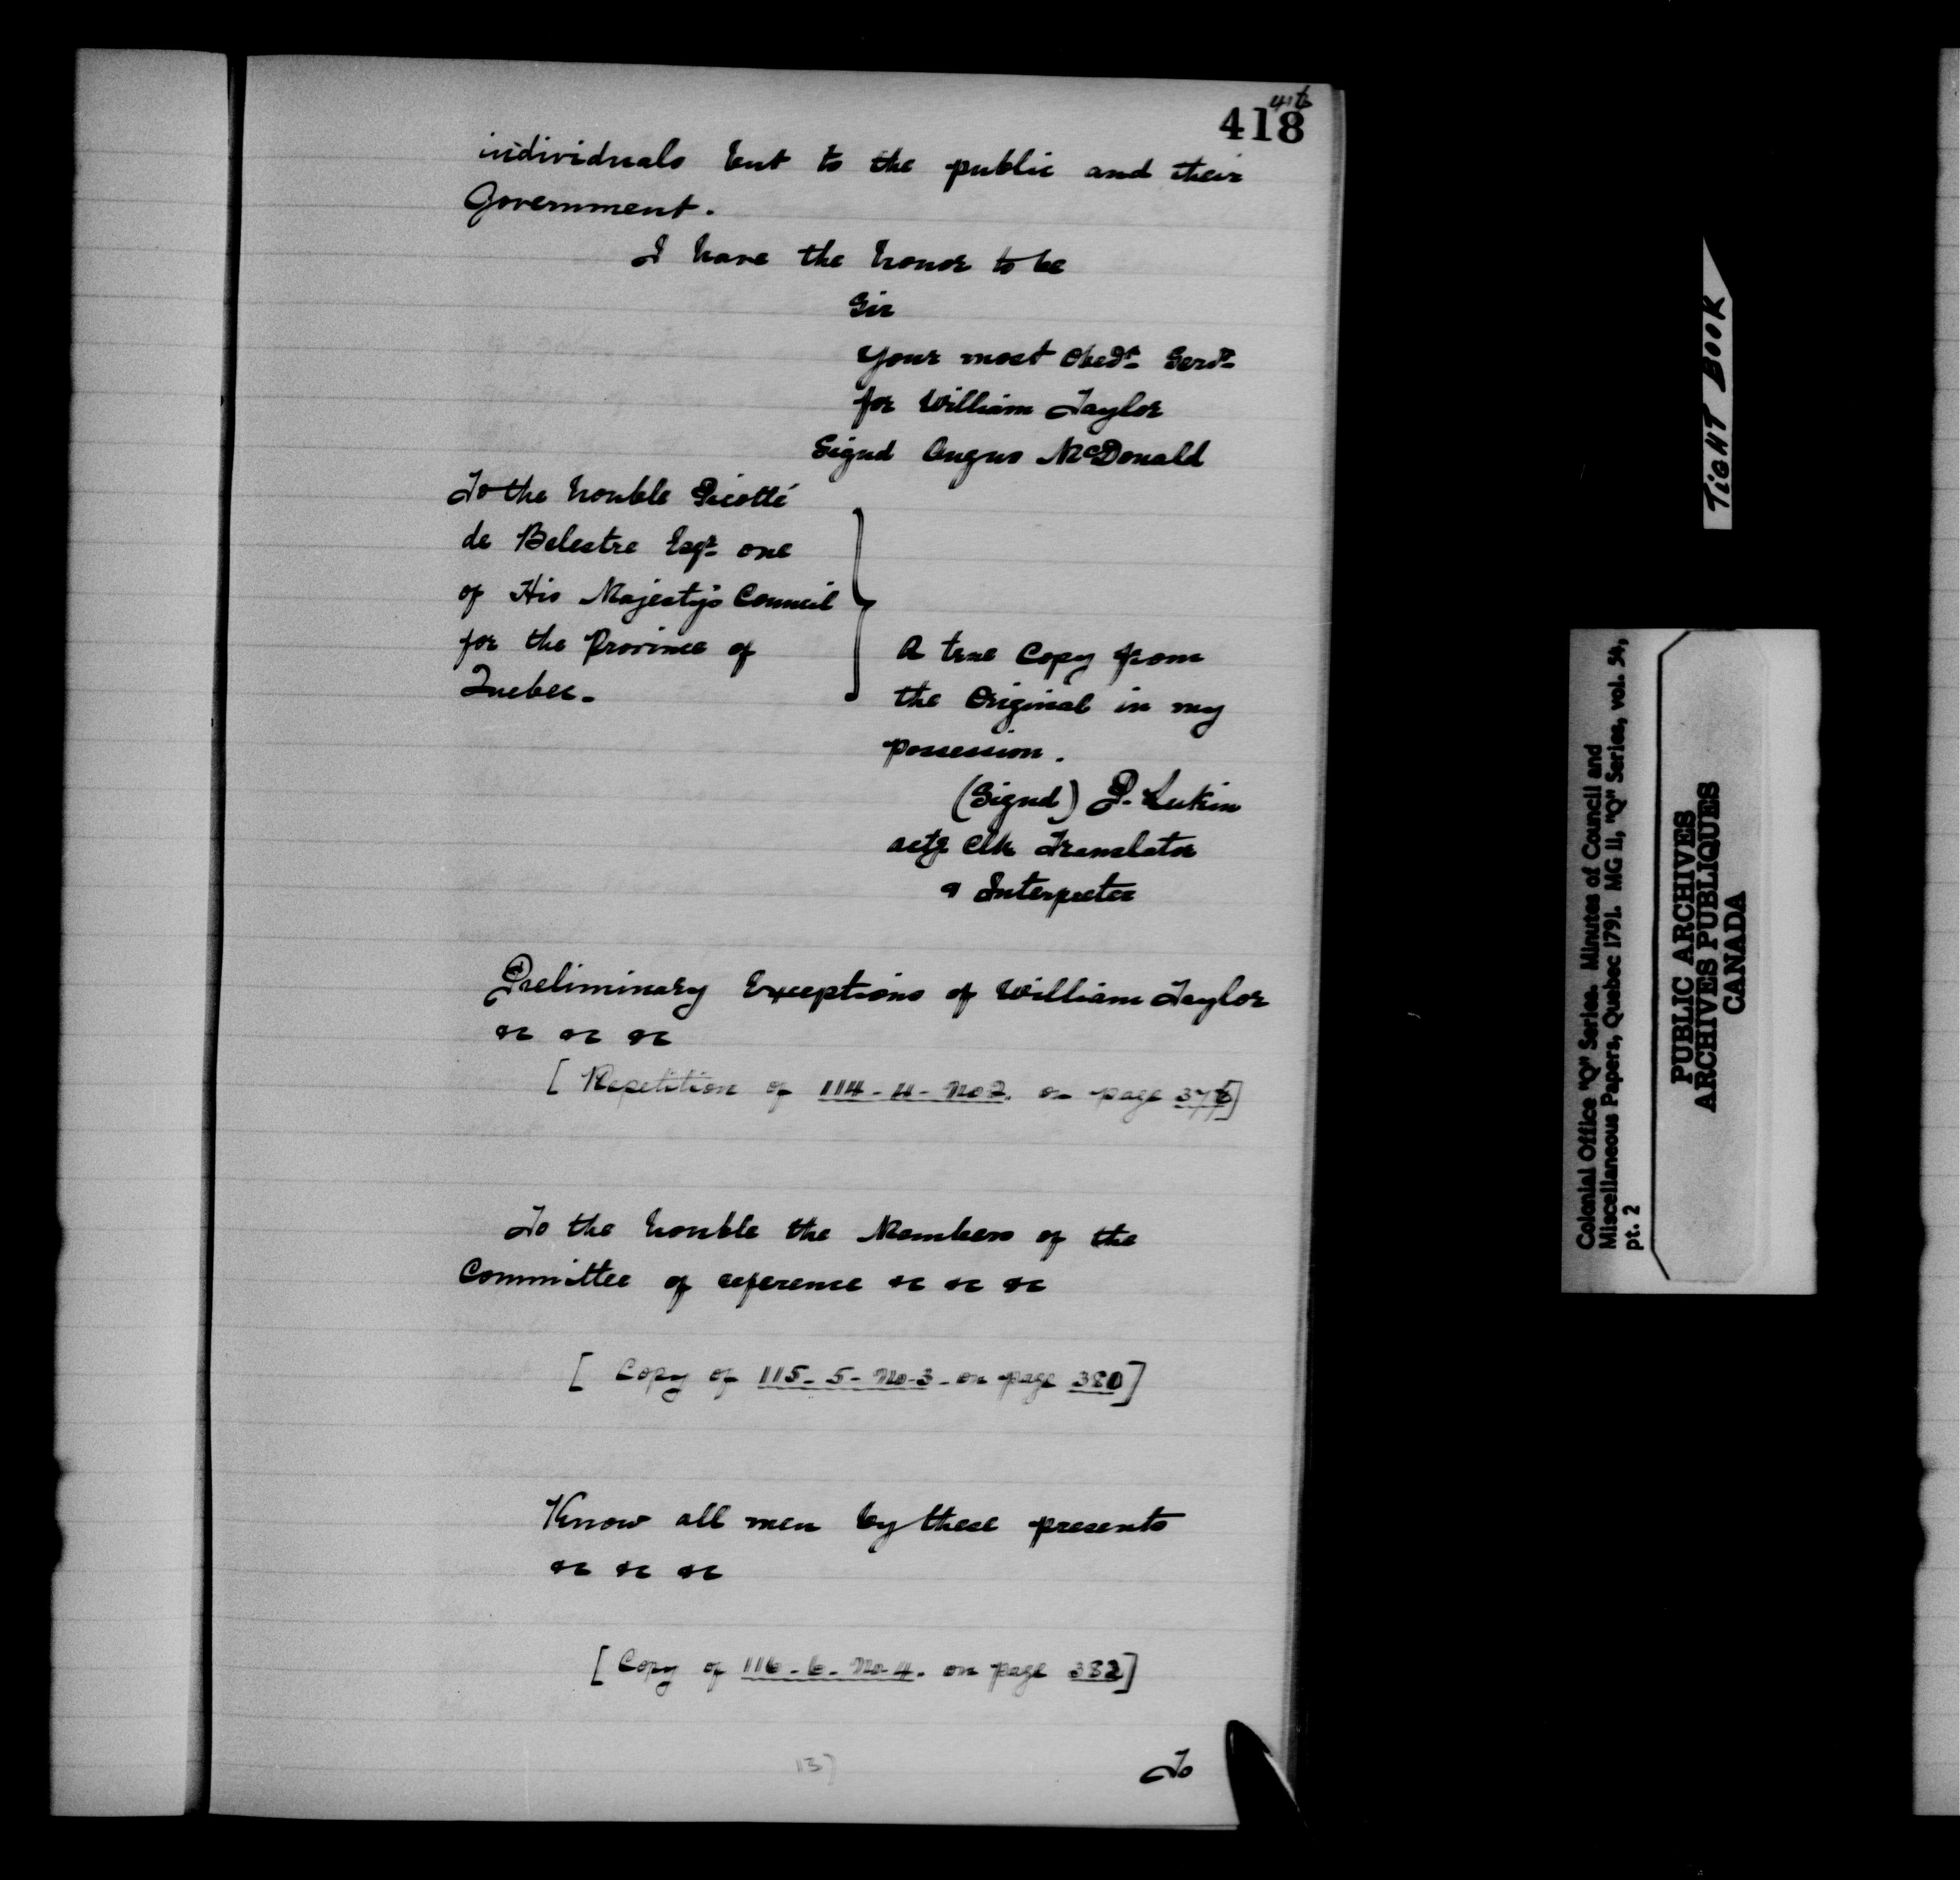 418
individuals but to the public and their
Government.
I have the honor to be
Sir
Your most Obedt. Servt.
for William Taylor
Signd Angus McDonald
To the honble Picotté
de Belestre Esqr. one
of His Majesty's Council
for the Province of
Quebec.
A true Copy from
the Original in my
possession.
(Signd) P. Lukin
actg Clk Translator
& Interpreter
Preliminary Exceptions of William Taylor
&c &c &c
[Repetition of 114-4-No2. on page]
To the honble the Members of the
Committee of reference &c &c &c
[Copy of 115-5-No-3-on page 380]
Know all men by these presents
&c &c &c
[Copy of 116-6-No-4. on page 382]
To
TIGHT BOOK
Colonial Office "Q" Series. Minutes of Council and
Miscellaneous Papers, Quebec 1791. MG 11, "Q" Series, vol. 54,
pt. 2
PUBLIC ARCHIVES
ARCHIVES PUBLIQUES
CANADA